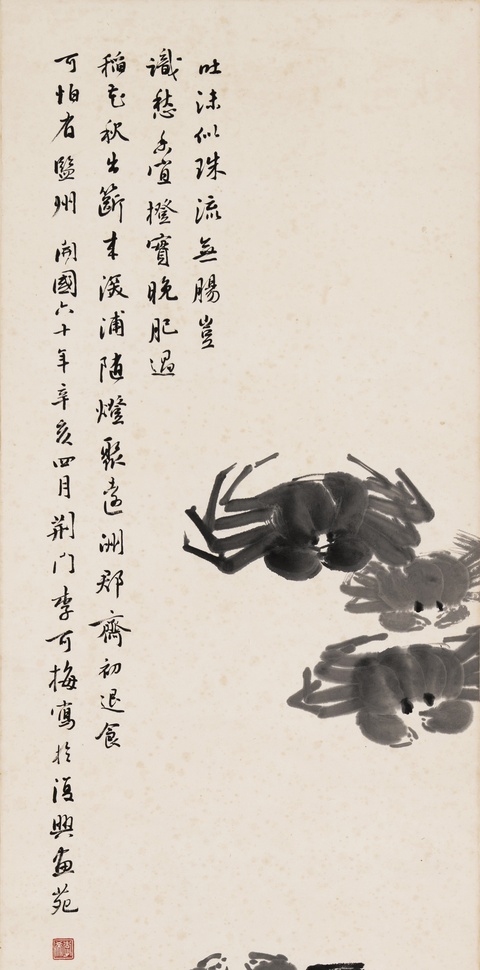 吐沫似珠流無腸豈
識愁香宜橙實晚肥過
稻花秋出籪來深浦随燈聚遠洲郡齋初退食
可怕有監州 開國六十年辛亥四月荆门李可梅寫於復興畫苑